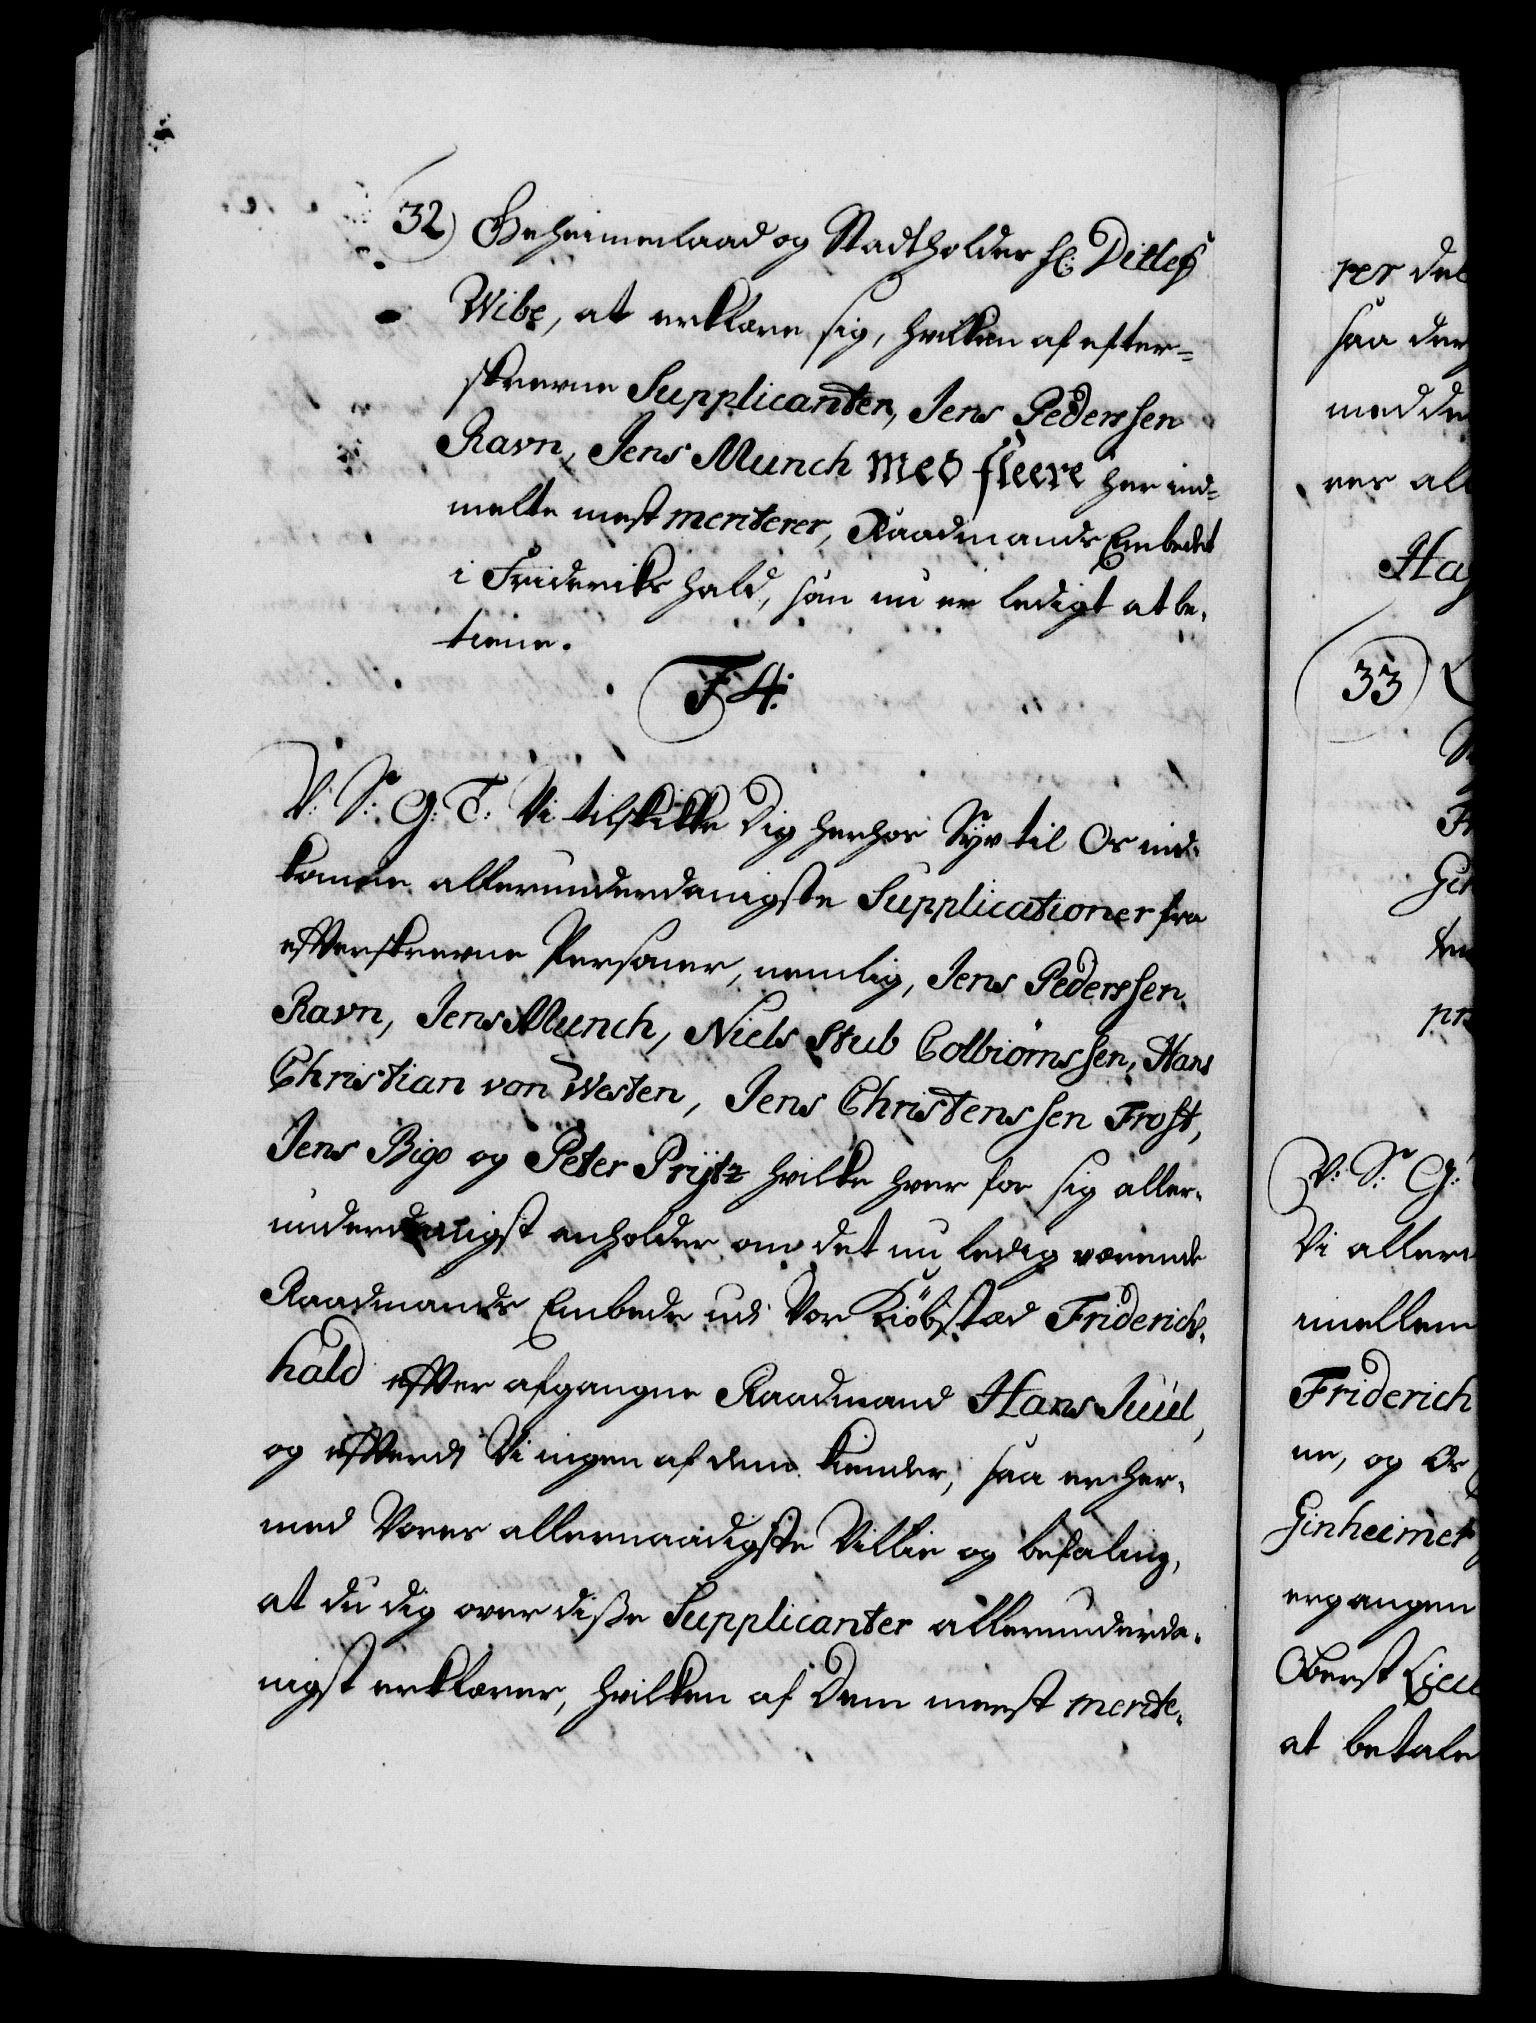 32) Geheimeraad og Stadtholder H: Ditlef
Wibe, at erklære sig, hvilken af efter-
skrevne Supplicanter, Jens Pederssen
Ravn, Jens Munch med fleere her ind-
melte mest meriterer, Raadmands Embedet
i Frideriks hald, som nu er ledigt at be-
tiene.
F 4.
V: S: G: T: Vi tilskikke Dig herhos Syv til Os ind-
komne allerunderdanigste Supplicationer fra
efterskrevne Personer, nemlig, Jens Pederssen
Ravn, Jens Munch, Niels Stub Colbiørnssen, Hans
Christian von Westen, Jens Christenssen Frost,
Jens Bigo og Peter Prytz hvilke hver for sig aller-
underdanigst anholder om det nu ledig værende
Raadmands Embede udi Vor Kiøbstæd Friderichs-
hald efter afgangne Raadmand Hans Juul,
og efterdi Vi ingen af dem kiender, saa er her-
med Vores allernaadigste Villie og befaling,
at du dig over disse Supplicanter allerunderda-
nigst erklærer, hvilken af Dem meest merite-
rer det
saa der
med de
res all
Hag
33)
V: S: G:
Vi allern
imellem
Friderich
ne, og Os
Ginheimer
ergangen
Oberst Lieu
at betale